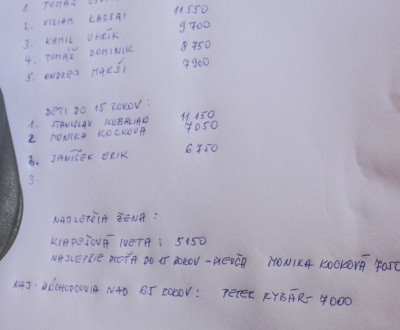 1. TOMÁŠ
2. VILIAM KASSAI 11550
3. KAMIL UHRÍK 9700
4. TOMÁŠ DOMINIK 8750
5. ONDREJ MARŠI 7900
DETI DO 15 ROKOV:
1. STANISLAV KUBALIAK 11 150
2 MONIKA KOCKOVÁ 7050
3. JANÍČEK ERIK 6750
3.
NAJLEPŠIA ŽENA:
KLAPEŠOVÁ IVETA: 5150
NAJLEPŠIE DIEŤA DO 15 ROKOV - DIEVČA MONIKA KOCKOVÁ 7050
NAJ- DÔCHODCOVIA NAD 65 ROKOV: PETER RYBÁR- 7000